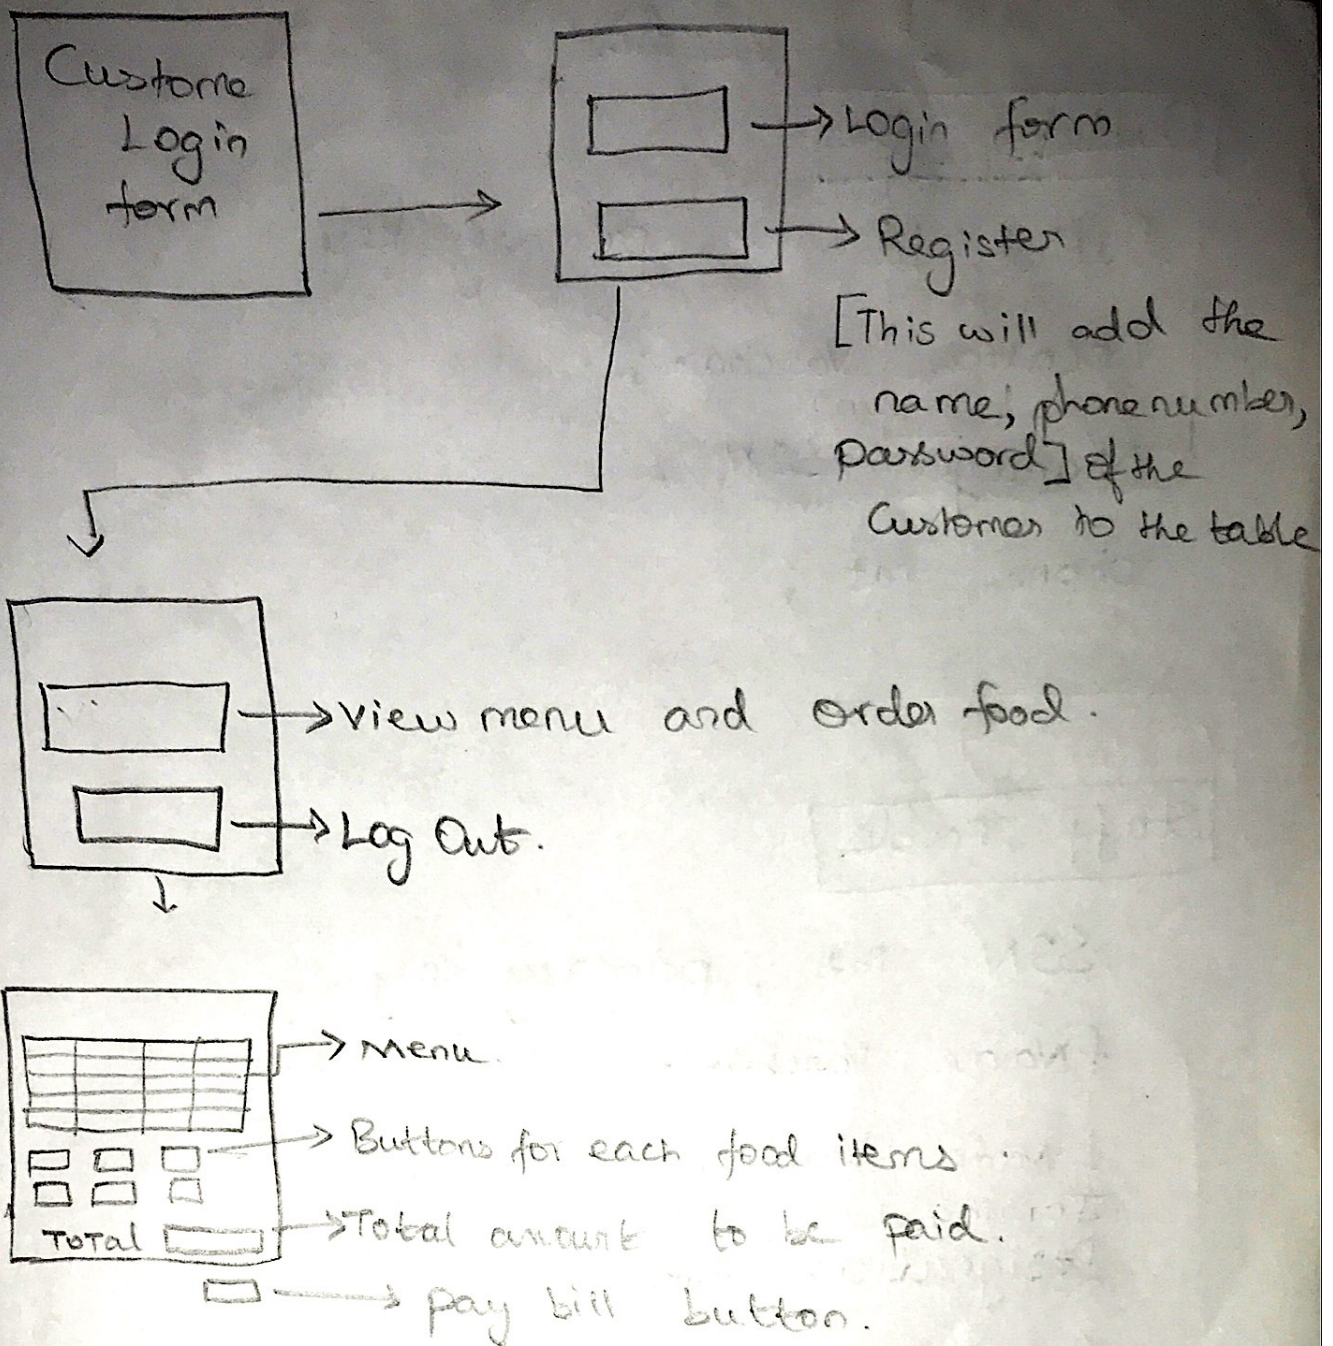 Custome
Login
form
Login form
Register
[This will add the
name, phonenumber,
password] of the
Customer to the table
View menu and order food.
Log Out.
Menu
Buttons for each food items
Total amount to be paid.
TOTAL
pay bill button.